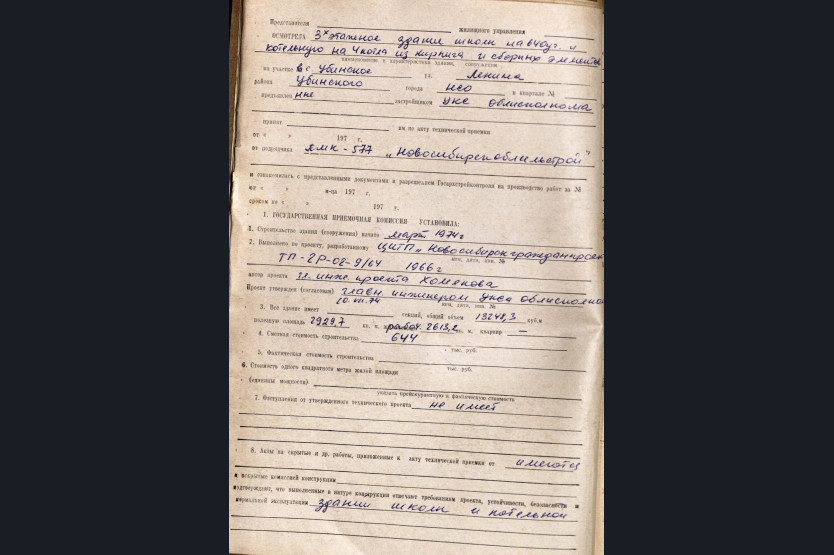 Представители жилищного управления
ОСМОТРЕЛА 3х этажное здание школы на 640уч. и
котельную на 4 котла из кирпича и сборных элементов
наименование и характеристика здания, сооружения
на участке в с. Убинское ул. Ленина
района Убинского города НСО в квартале №
предъявлен ные застройщиком УКС облисполкома
принят им по акту технической приемки
от « » 197 г.
от подрядчика ПМК-577 „Новосибирскоблсельстрой"
и ознакомилась с представленными документами и разрешением Госархстройконтроля на производство работ за №
от « » м-ца 197 г.
сроком по « » 197 г.
1. ГОСУДАРСТВЕННАЯ ПРИЕМОЧНАЯ КОМИССИЯ УСТАНОВИЛА:
1. Строительство здания (сооружения) начато март 1974г
2. Выполнено по проекту, разработанному ЦИТП „Новосибирскгражданпроект
ТП-2Р-02-9/64 1966г
автор проекта гл. инж. проекта Хомякова
Проект утвержден (согласован) главн. инженером УКСа облисполко
10.VII.74 кем, дата, пов. №
3. Все здание имеет секций, общий объем 13248,3 куб.м
полезную площадь 2929,7 кв. м, рабоч. 2613,2 кв. м, квартир —
4. Сметная стоимость строительства 644 тыс. руб.
5. Фактическая стоимость строительства тыс. руб.
6. Стоимость одного квадратного метра жилой площади
(единицы мощности)
указать прейскурантную и фактическую стоимость
7. Отступления от утвержденного технического проекта не имеет
8. Акты на скрытые и др. работы, приложенные к акту технической приемки от имеются
и вскрытые комиссией конструкции
подтверждают, что выполненные в натуре конструкции отвечают требованиям проекта, устойчивости, безопасности и
нормальной эксплуатации здания школы и котельной